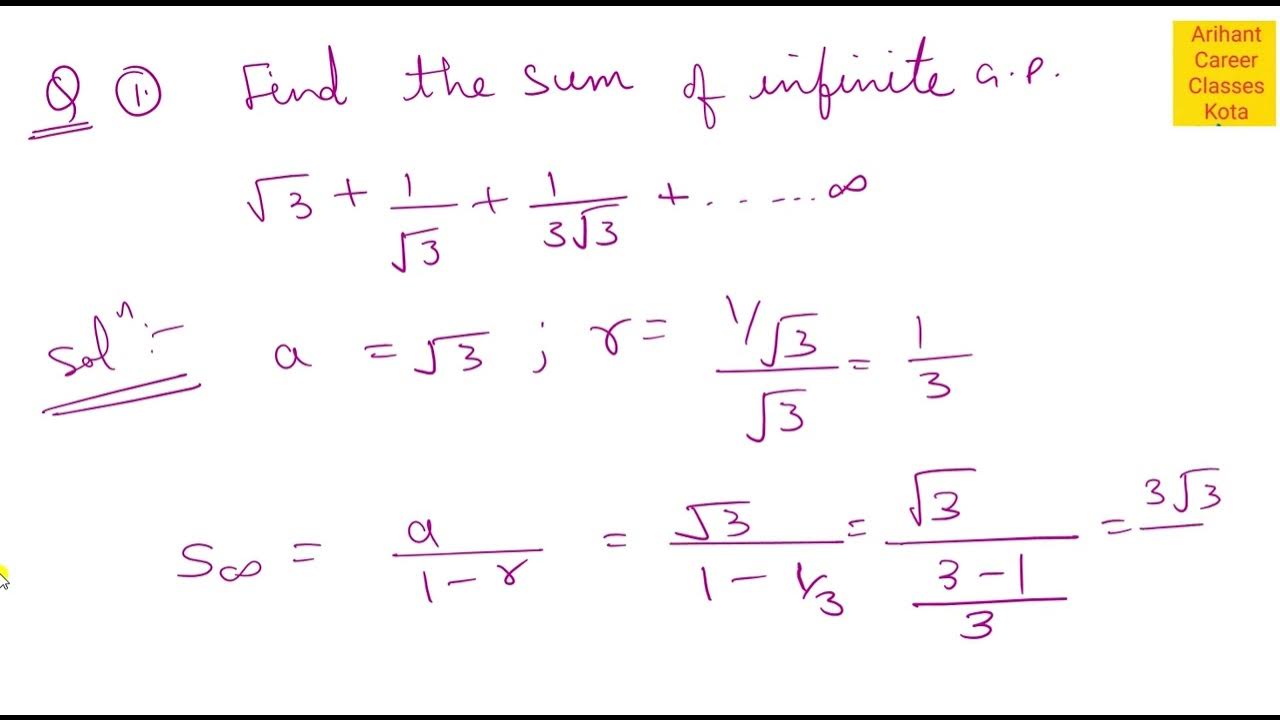 Arihant
Career
Classes
Kota
Q ① Find the sum of infinite G.P.
√3 + 1/√3 + 1/3√3 + ...... ∞
Solⁿ :- a = √3 ; r = (1/√3)/√3 = 1/3
S∞ = a/(1 - r) = √3/(1 - 1/3) = √3/((3 - 1)/3) = 3√3/